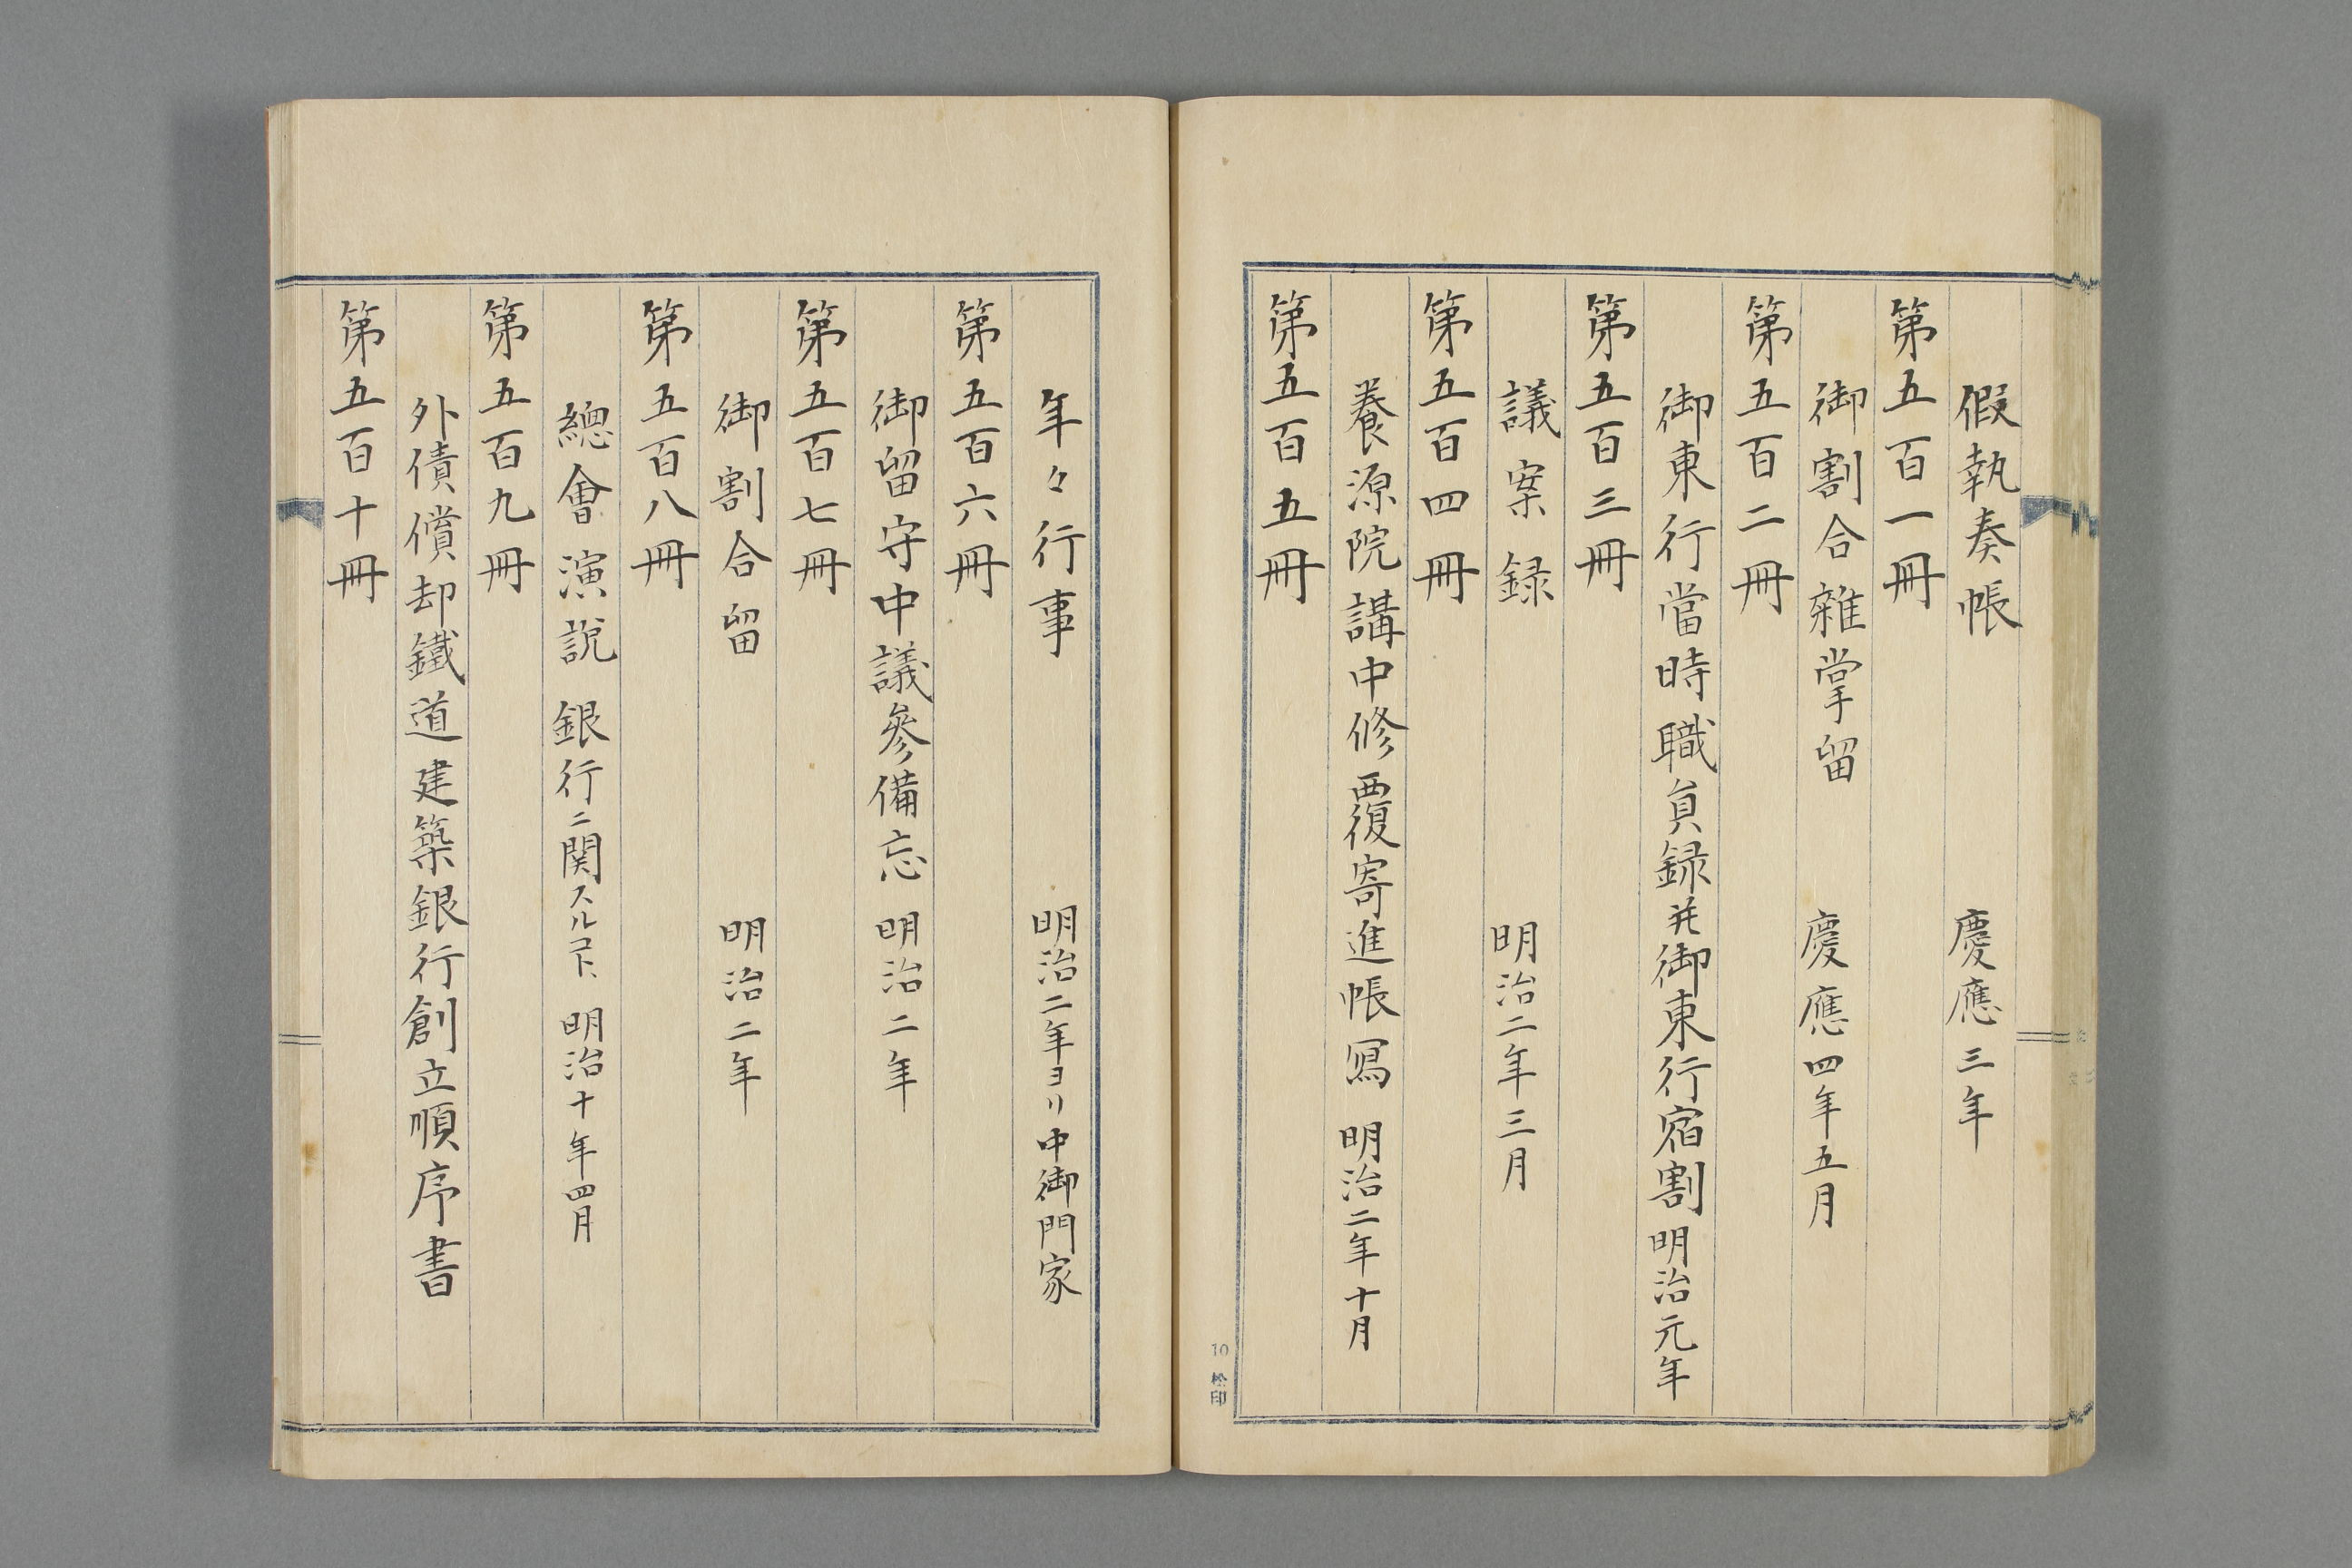 假執奏帳 慶應三年
第五百一冊
御割合雜掌留 慶應四年五月
第五百二冊
御東行當時職員録并御東行宿割 明治元年
第五百三冊
議案録 明治二年三月
第五百四冊
養源院講中修覆寄進帳冩 明治二年十月
第五百五冊
10 松印
年々行事 明治二年ヨリ中御門家
第五百六冊
御留守中議參備忘 明治二年
第五百七冊
御割合留 明治二年
第五百八冊
總會演説 銀行ニ関スルコト、 明治十年四月
第五百九冊
外債償却鐵道建築銀行創立順序書
第五百十冊